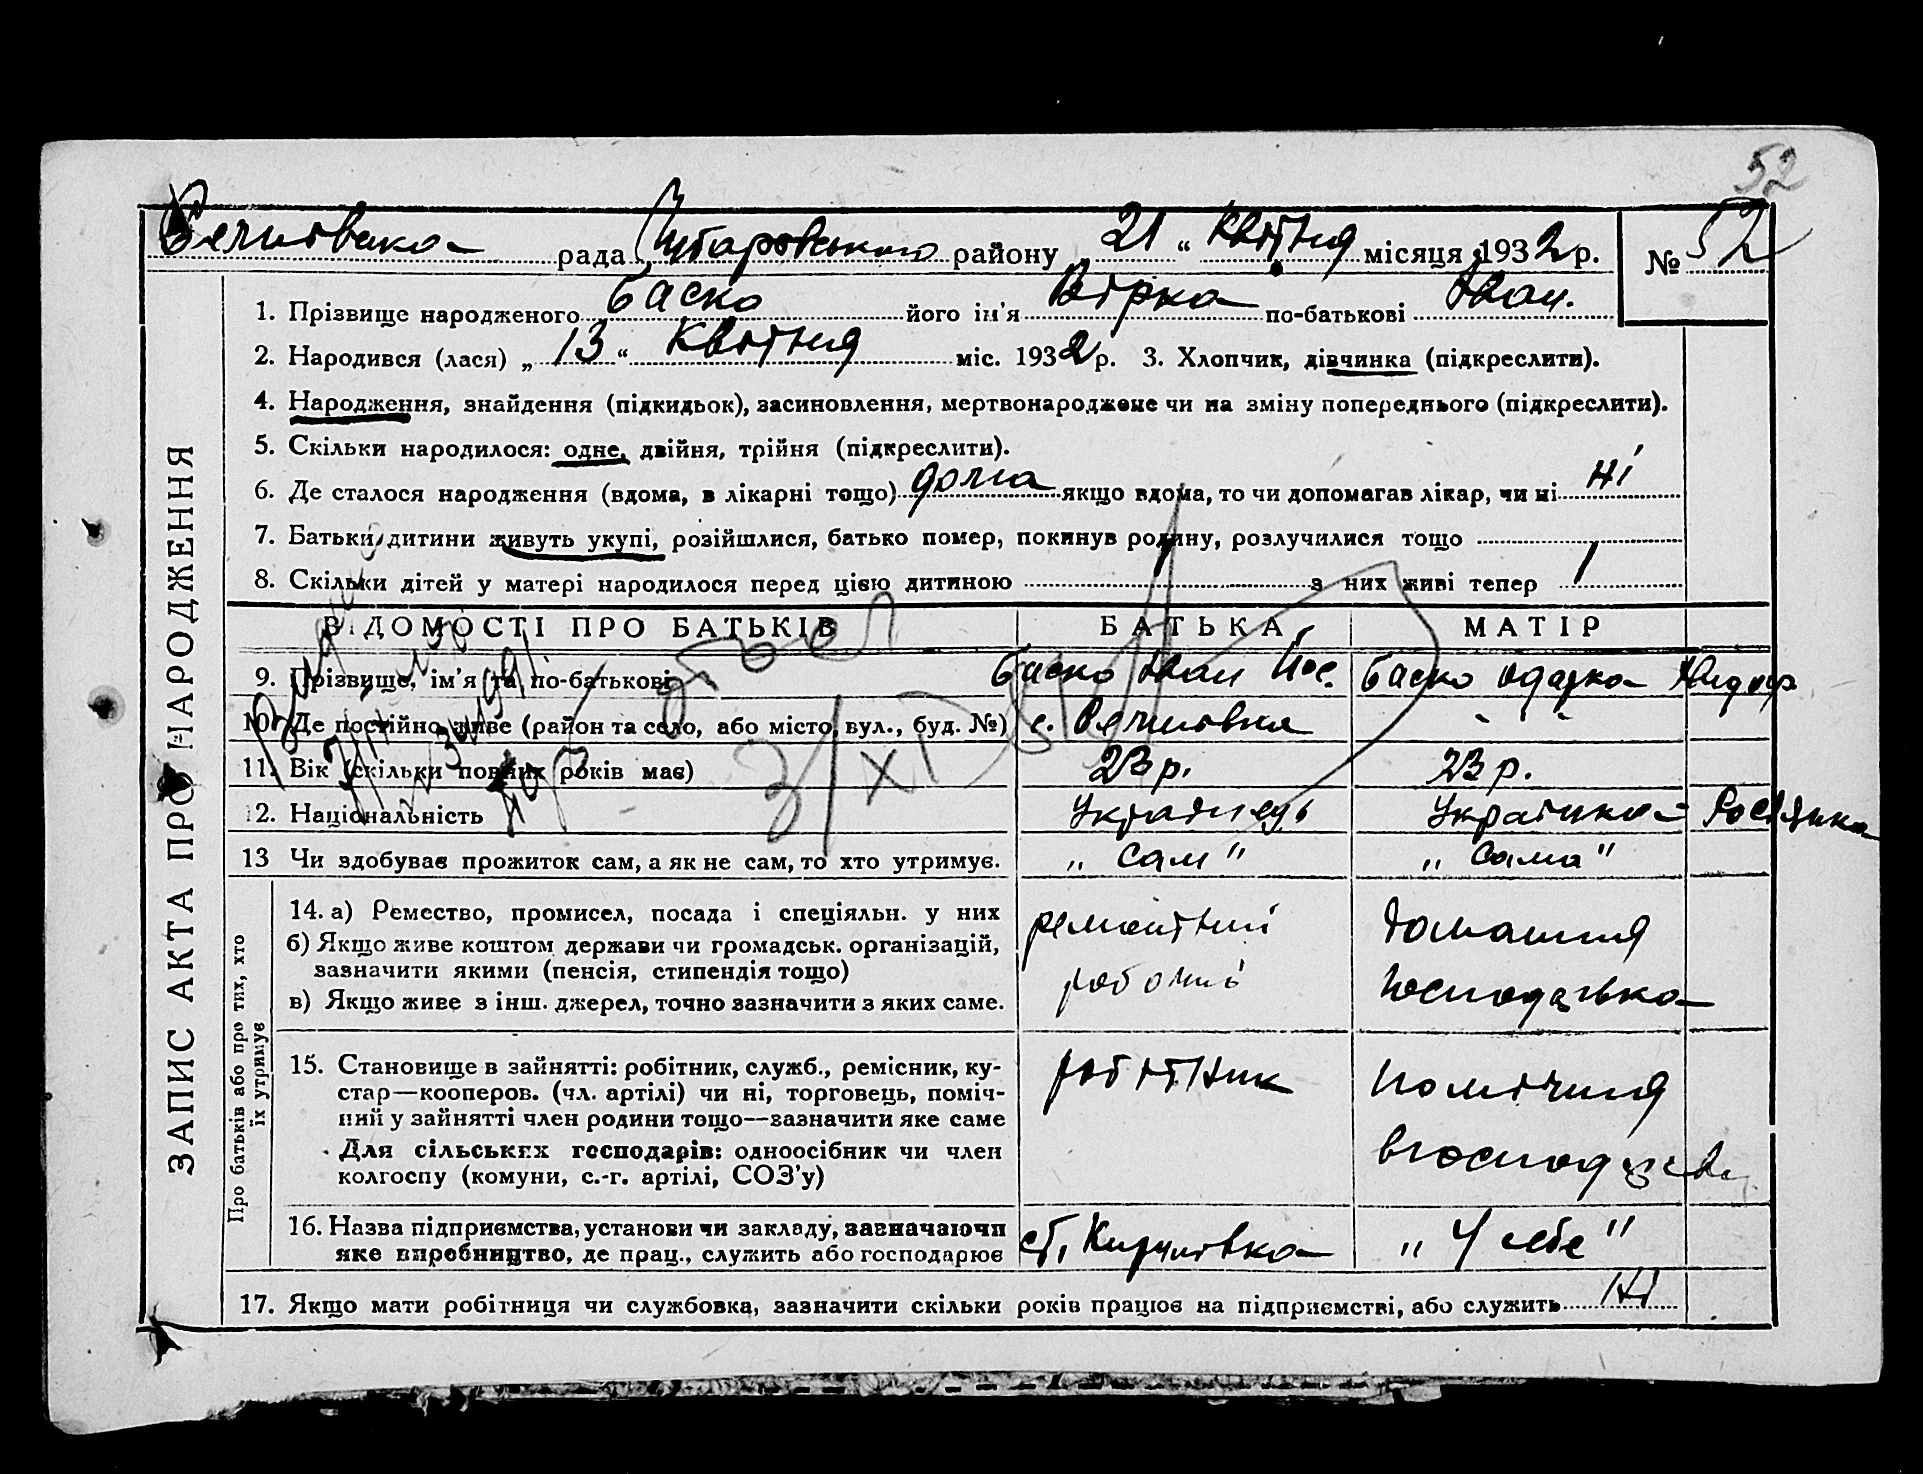 52
рада районy „ 21 “ Квітня місяця 1932 р. № 52
1. Прізвище народженого Баско його ім'я Вірка по-батькові Іван.
2. Народився (лася) „ 13 “ Квітня міс. 1932 р. 3. Хлопчик, дівчинка (підкреслити).
4. Народження, знайдення (підкидьок), засиновлення, мертвонароджене чи на зміну попереднього (підкреслити).
5. Скільки народилося: одне, двійня, трійня (підкреслити).
6. Де сталося народження (вдома, в лікарні тощо) дома якщо вдома, то чи допомагав лікар, чи ні Ні
7. Батьки дитини живуть укупі, розійшлися, батько помер, покинув родину, розлучилися тощо
8. Скільки дітей у матері народилося перед цією дитиною 1 з них живі тепер 1
ЗАПИС АКТА ПРО НАРОДЖЕННЯ
ВІДОМОСТІ ПРО БАТЬКІВ БАТЬКА МАТІР
9. Прізвище, ім'я та по-батькові Баско Іван Йос. Баско Одарка
10. Де постійно живе (район та село, або місто, вул., буд. №) с.
11. Вік (скільки повних років має) 23 р. 23 р.
12. Національність Українець Українка
13 Чи здобуває прожиток сам, а як не сам, то хто утримує. „ Сам " „ Сама "
Про батьків або про тих, хто
їх утримує
14. а) Ремество, промисел, посада і спеціяльн. у них
б) Якщо живе коштом держави чи громадськ. організацій,
зазначити якими (пенсія, стипендія тощо)
в) Якщо живе з інш. джерел, точно зазначити з яких саме.
ремонтний домашня
15. Становище в зайнятті: робітник, служб., ремісник, ку-
стар—кооперов. (чл. артілі) чи ні, торговець, поміч-
ний у зайнятті член родини тощо—зазначити яке саме
Для сільських господарів: одноосібник чи член
колгоспу (комуни, с.-г. артілі, СОЗ'у)
робітник помічня
16. Назва підприємства, установи чи закладу, зазначаючи
яке виробництво, де прац., служить або господарює
ст. „ У себе "
17. Якщо мати робітниця чи службовка, зазначити скільки років працює на підприємстві, або служить Ні